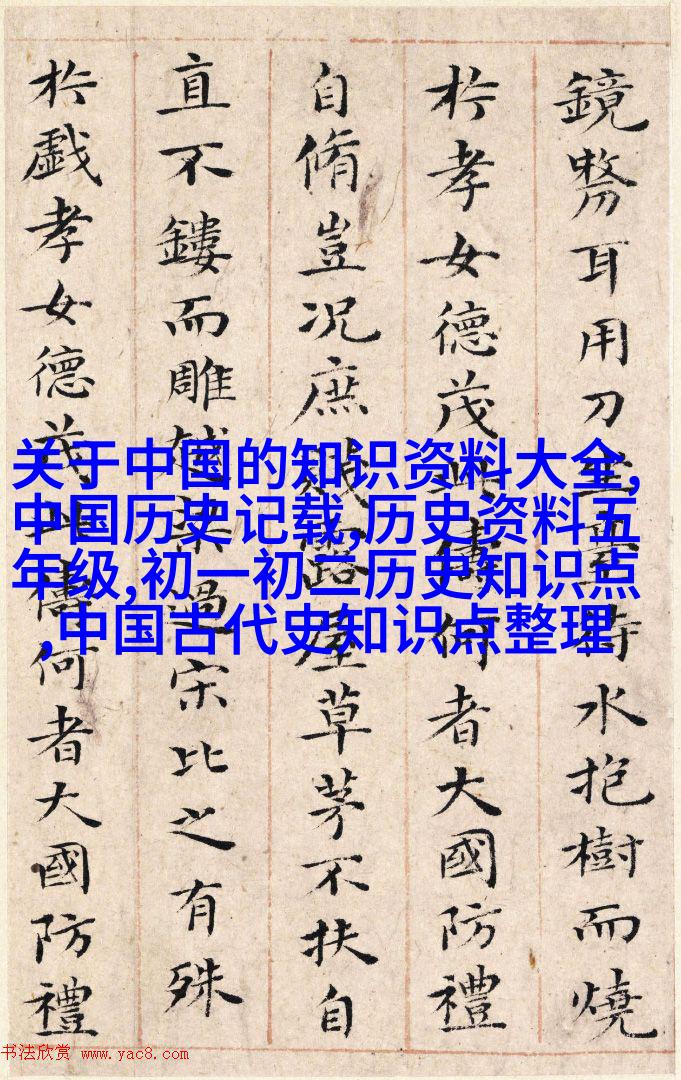 鏡剺耳用刀坐臺待水抱樹而燒
扵孝女德茂此儔何者大國防禮
自脩豈况庶賤露屋草茅不扶自
直不鏤而雕越梁過宋比之有殊
扵戲孝女德茂此儔何者大國防禮
关于中国的知识资料大全,
中国历史记载,历史资料五
年级,初一初二历史知识点
,中国古代史知识点整理
书法欣赏 www.yac8.com